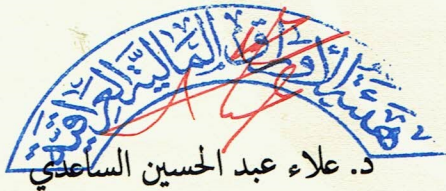 هيئة الأوراق المالية العراقية
د. علاء عبد الحسين الساعدي